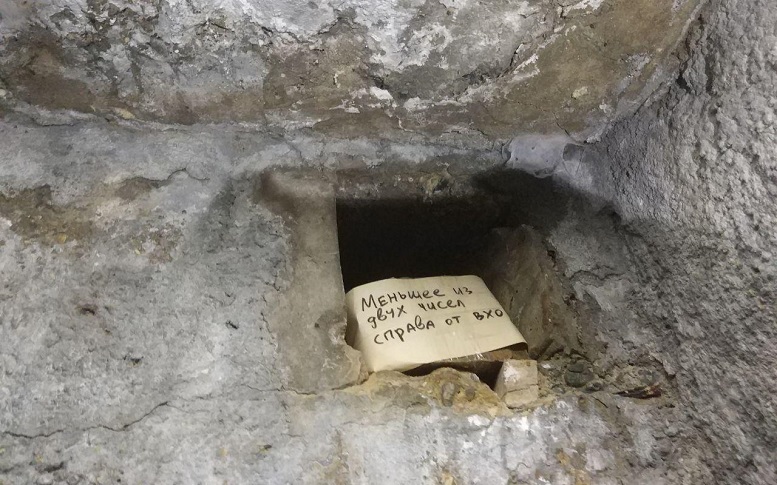 Меньшее из
двух чисел
справа от вхо